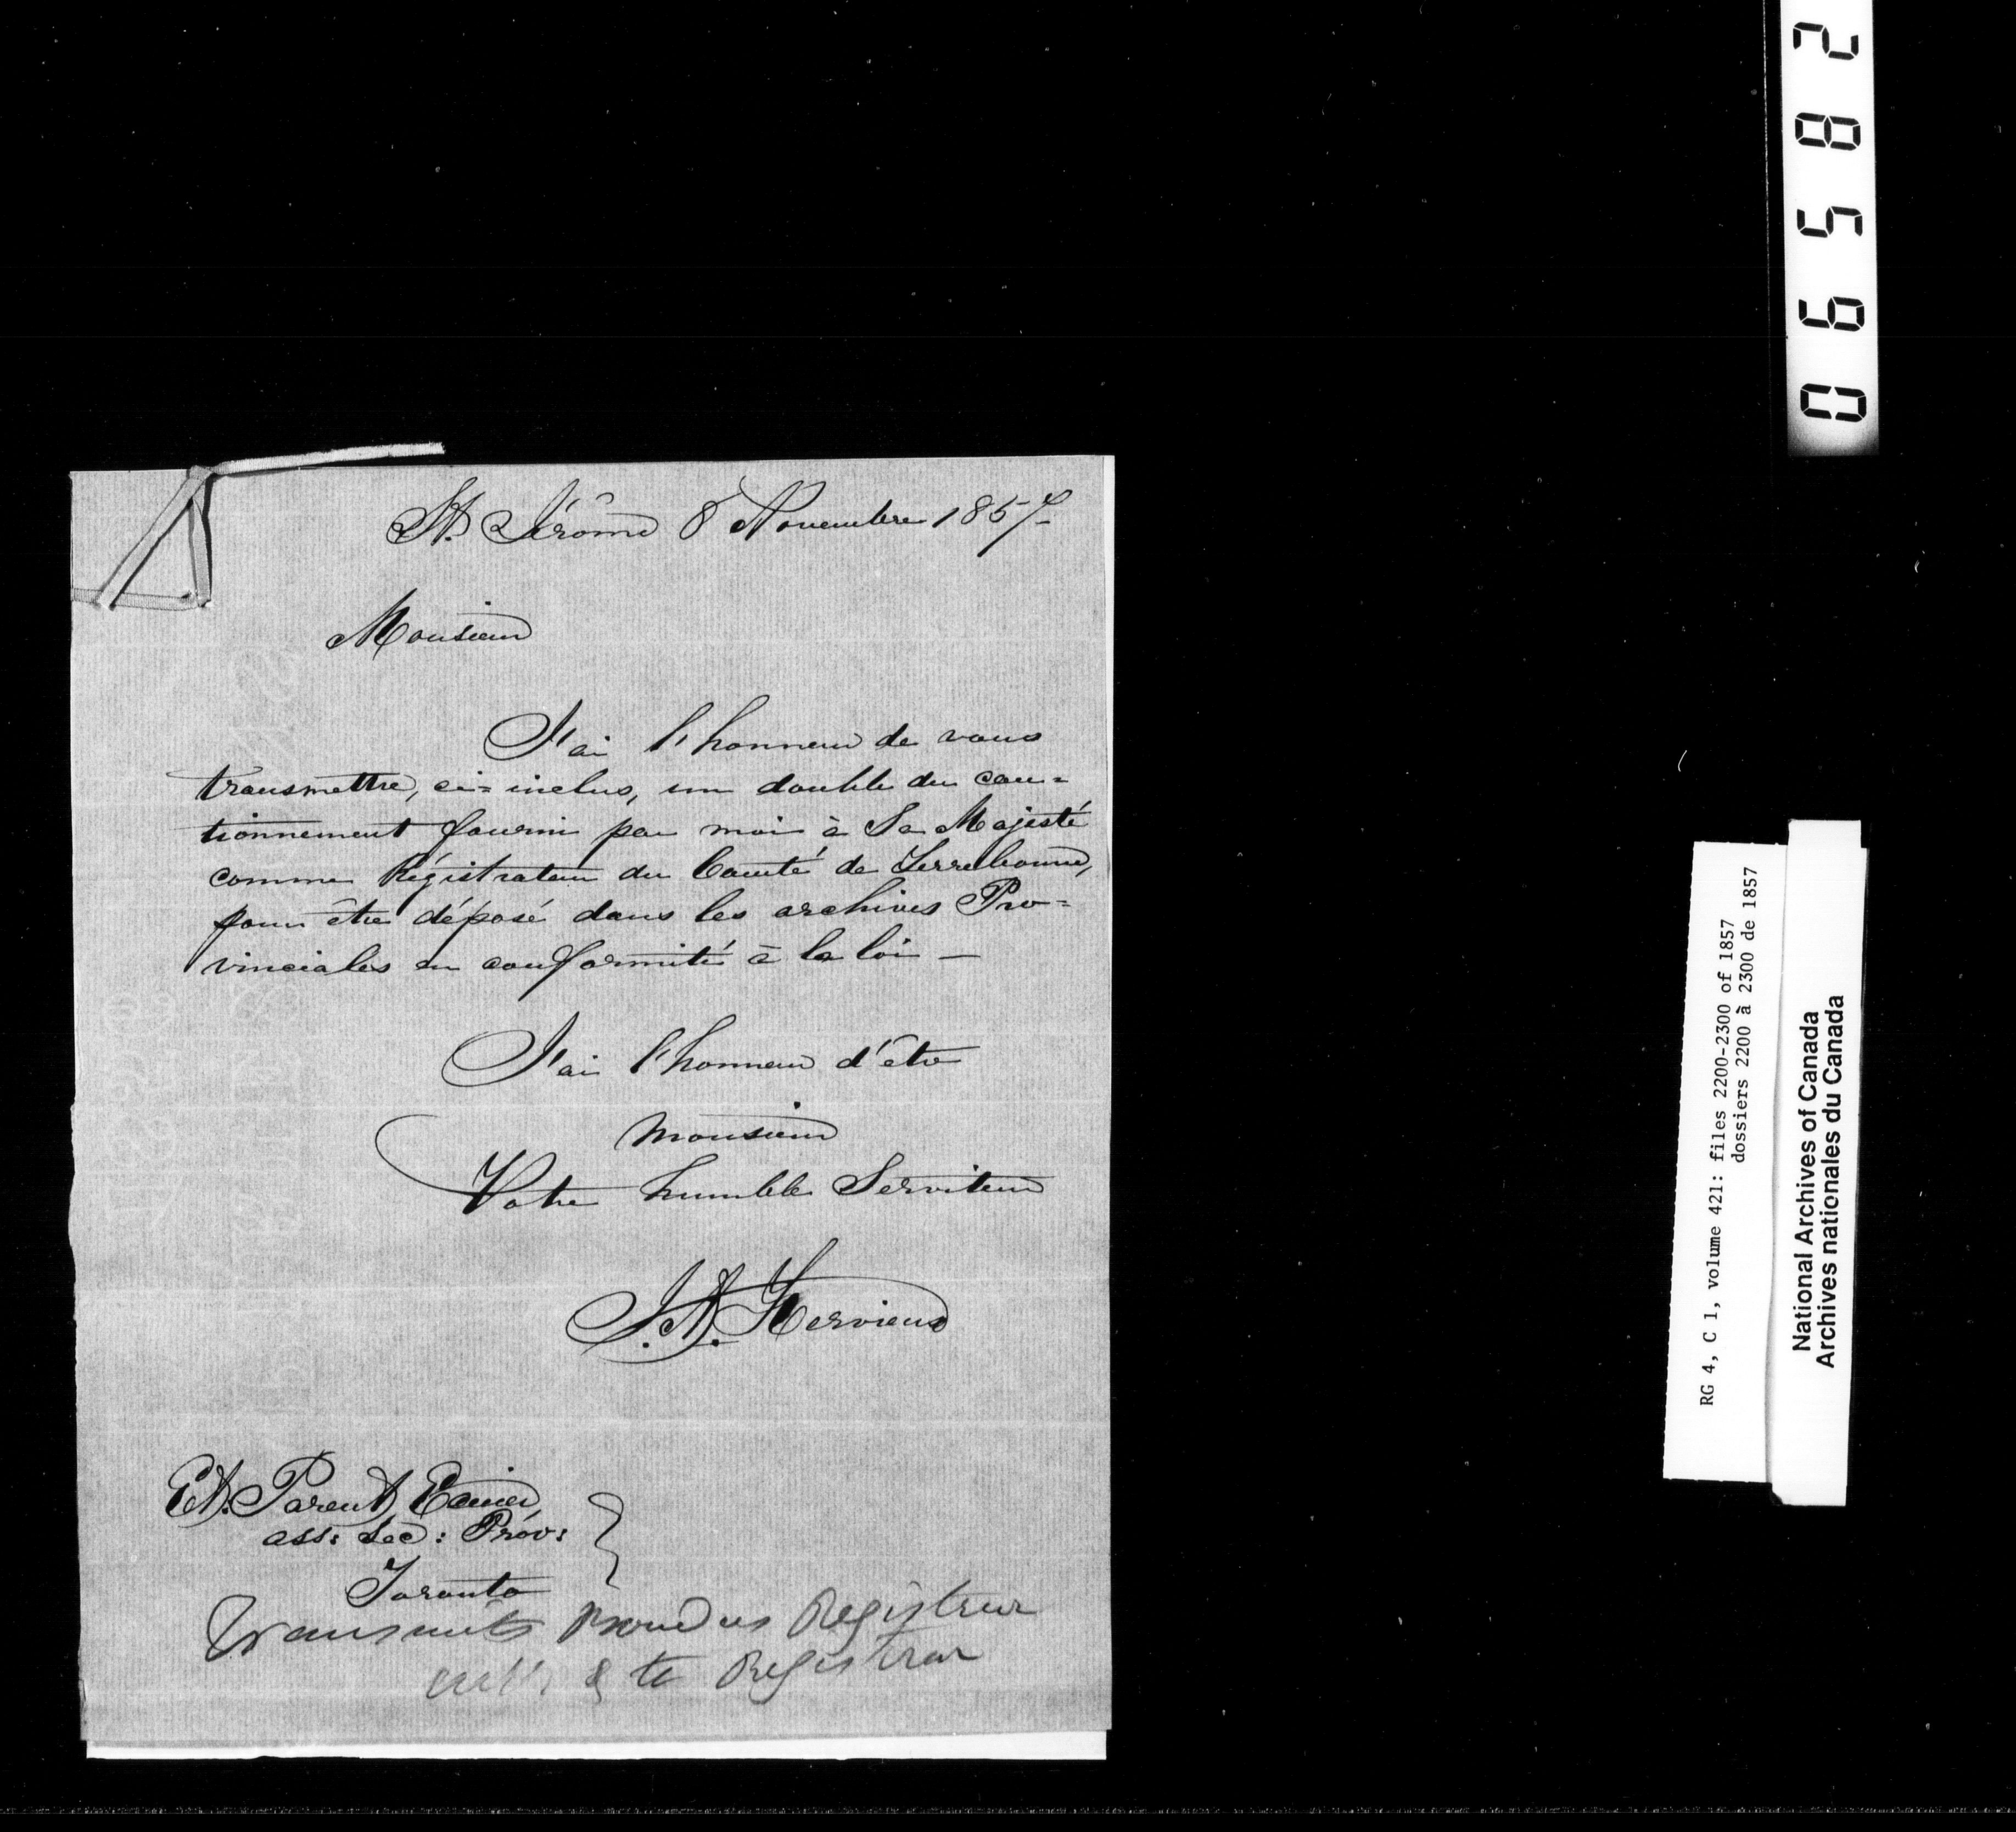 St. Jérôme 8 Novembre 1857
Monsieur
J'ai l'honneur de vous
transmettre, ci=inclus, un double du cau=
tionnement fourni par moi à Sa Majesté
comme Régistrateur du Comté de Terrebonne,
pour être déposé dans les archives Pro=
vinciales en conformité à la loi —
J'ai l'honneur d'être
Monsieur
Votre humble Serviteur
J. A. Hervieux
Et. Parent Ecuier
ass: Sec: Prov:
Toronto
Transmits Registrar
& to Registrar
06582
RG 4, C 1, volume 421: files 2200-2300 of 1857
dossiers 2200 à 2300 de 1857
National Archives of Canada
Archives nationales du Canada